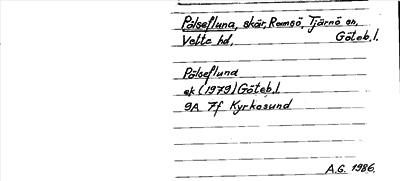 Pålsefluna, skär, Ramsö, Tjärnö sn,
Vette hd, Göteb.l.
Pålseflund
ek (1979) Göteb.l
9A 7f Kyrkosund
A.G. 1986.